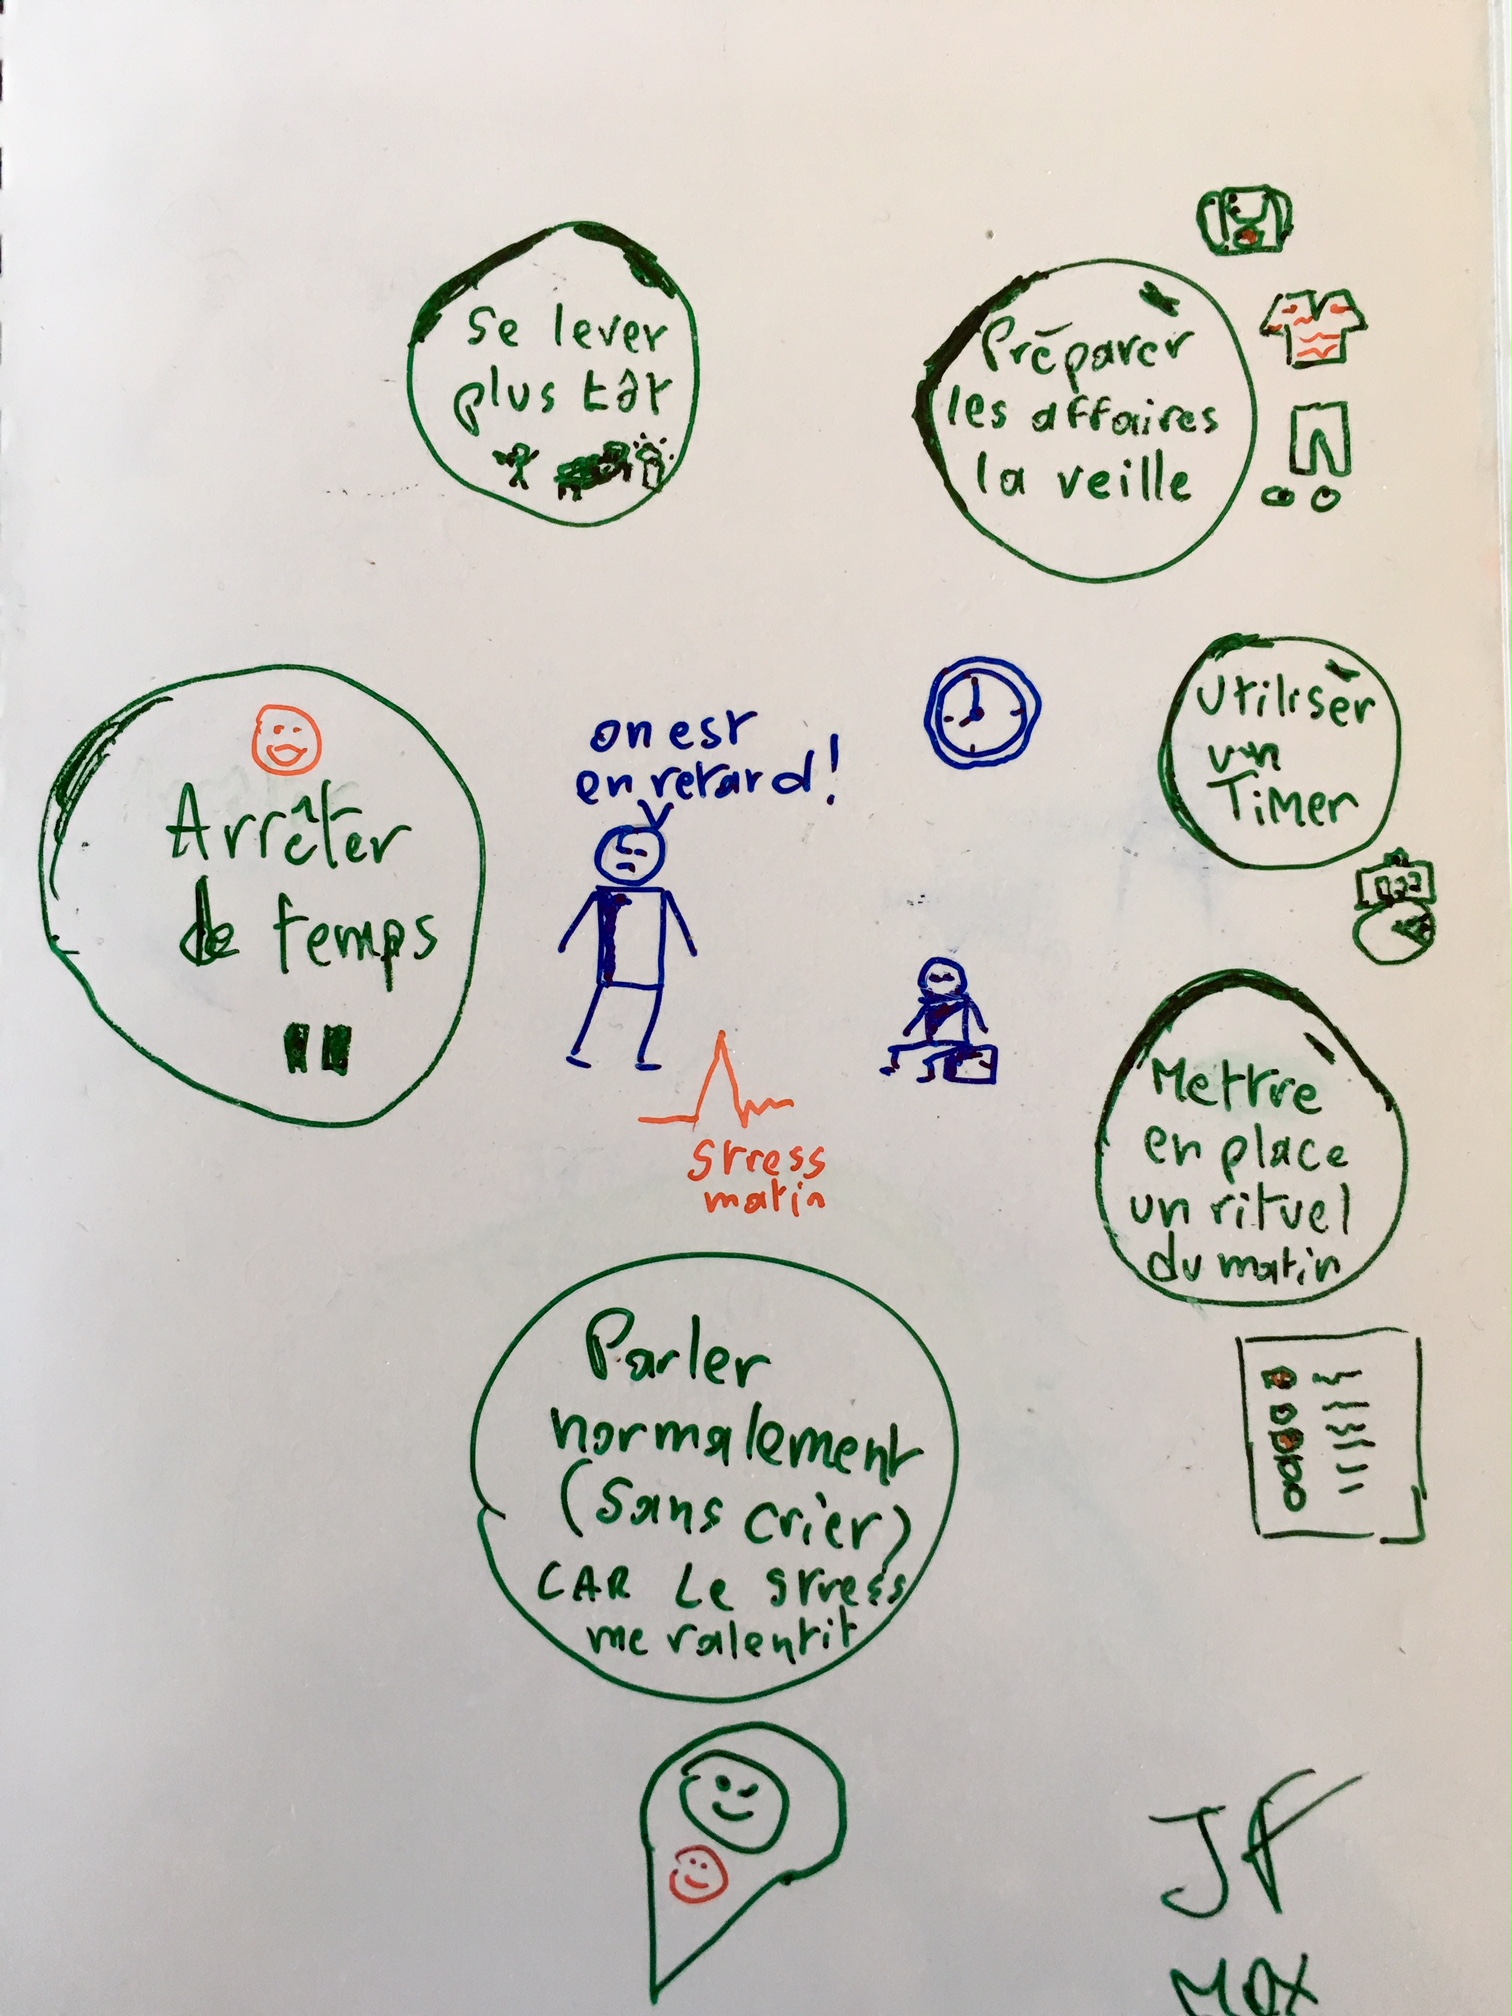 Se lever
plus tôt
Préparer
les affaires
la veille
Arrêter
de temps
on est
en retard!
Utiliser
un
Timer
stress
matin
Mettre
en place
un rituel
du matin
Parler
normalement
(sans crier)
CAR Le stress
me ralentit
JF
MAX